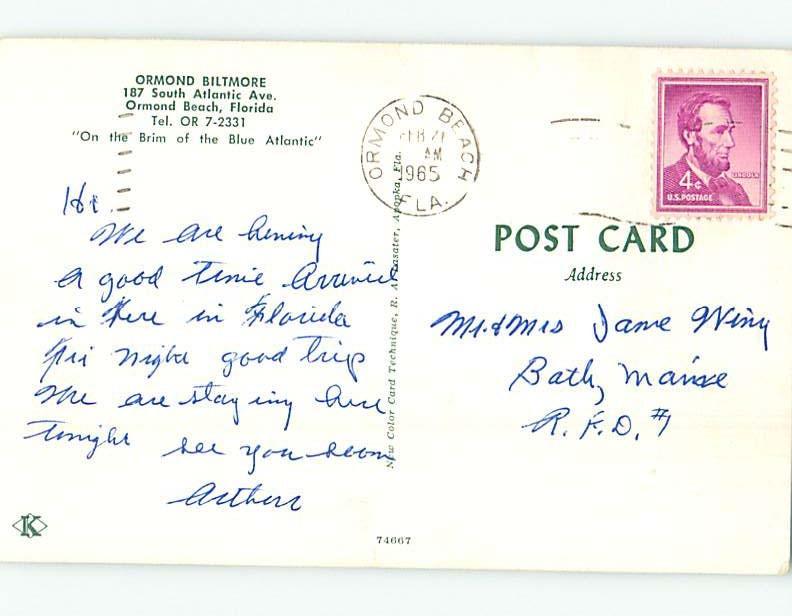 ORMOND BILTMORE
187 South Atlantic Ave.
Ormond Beach, Florida
Tel. OR 7-2331
"On the Brim of the Blue Atlantic"
ORMOND BEACH
FEB 21
AM
1965
FLA.
4¢
LINCOLN
U.S. POSTAGE
Hi.
We are haning
a good time Arrived
in Here in Florida
Fri night good trip
We are staying here
tonight see you soon
Arthur
New Color Card Technique, R. A. Lasater, Apopka, Fla.
POST CARD
Address
Mr. & Mrs Jane Winy
Bath, Maine
R.F.D. #1
K
74667